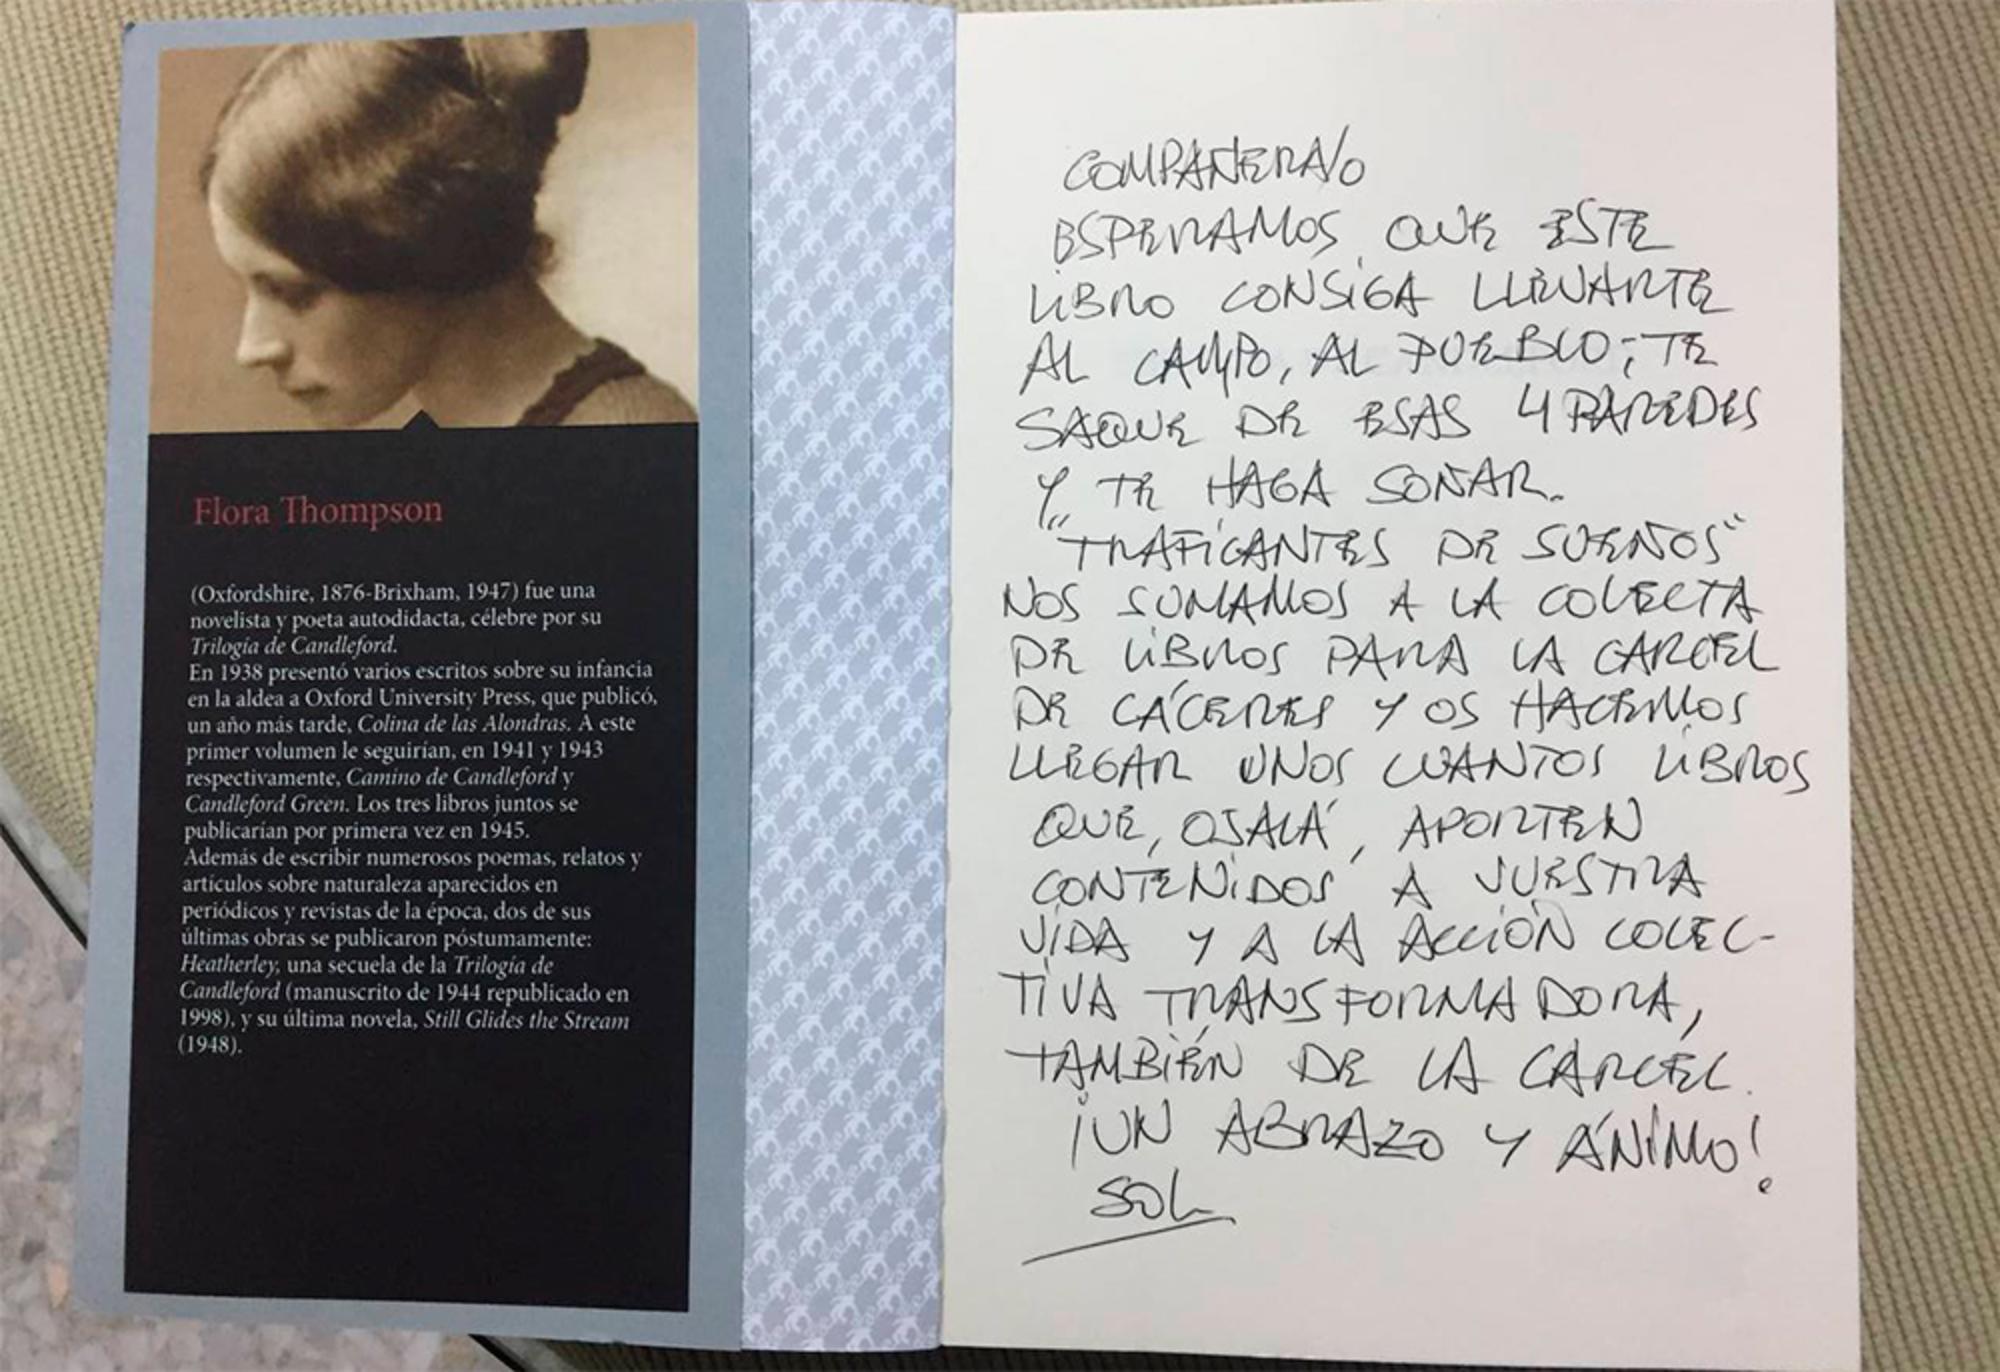 Flora Thompson
(Oxfordshire, 1876-Brixham, 1947) fue una
novelista y poeta autodidacta, célebre por su
Trilogía de Candleford.
En 1938 presentó varios escritos sobre su infancia
en la aldea a Oxford University Press, que publicó,
un año más tarde, Colina de las Alondras. A este
primer volumen le seguirían, en 1941 y 1943
respectivamente, Camino de Candleford y
Candleford Green. Los tres libros juntos se
publicarían por primera vez en 1945.
Además de escribir numerosos poemas, relatos y
artículos sobre naturaleza aparecidos en
periódicos y revistas de la época, dos de sus
últimas obras se publicaron póstumamente:
Heatherley, una secuela de la Trilogía de
Candleford (manuscrito de 1944 republicado en
1998), y su última novela, Still Glides the Stream
(1948).
COMPAÑERA/O
ESPERAMOS QUE ESTE
LIBRO CONSIGA LLEVARTE
AL CAMPO, AL PUEBLO; TE
SAQUE DE ESAS 4 PAREDES
Y TE HAGA SOÑAR.
"TRAFICANTES DE SUEÑOS"
NOS SUMAMOS A LA COLECTA
DE LIBROS PARA LA CARCEL
DE CÁCERES Y OS HACEMOS
LLEGAR UNOS CUANTOS LIBROS
QUE, OJALÁ, APORTEN
CONTENIDOS A VUESTRA
VIDA Y A LA ACCIÓN COLEC-
TIVA TRANSFORMADORA,
TAMBIÉN DE LA CARCEL.
¡UN ABRAZO Y ÁNIMO!
SOL